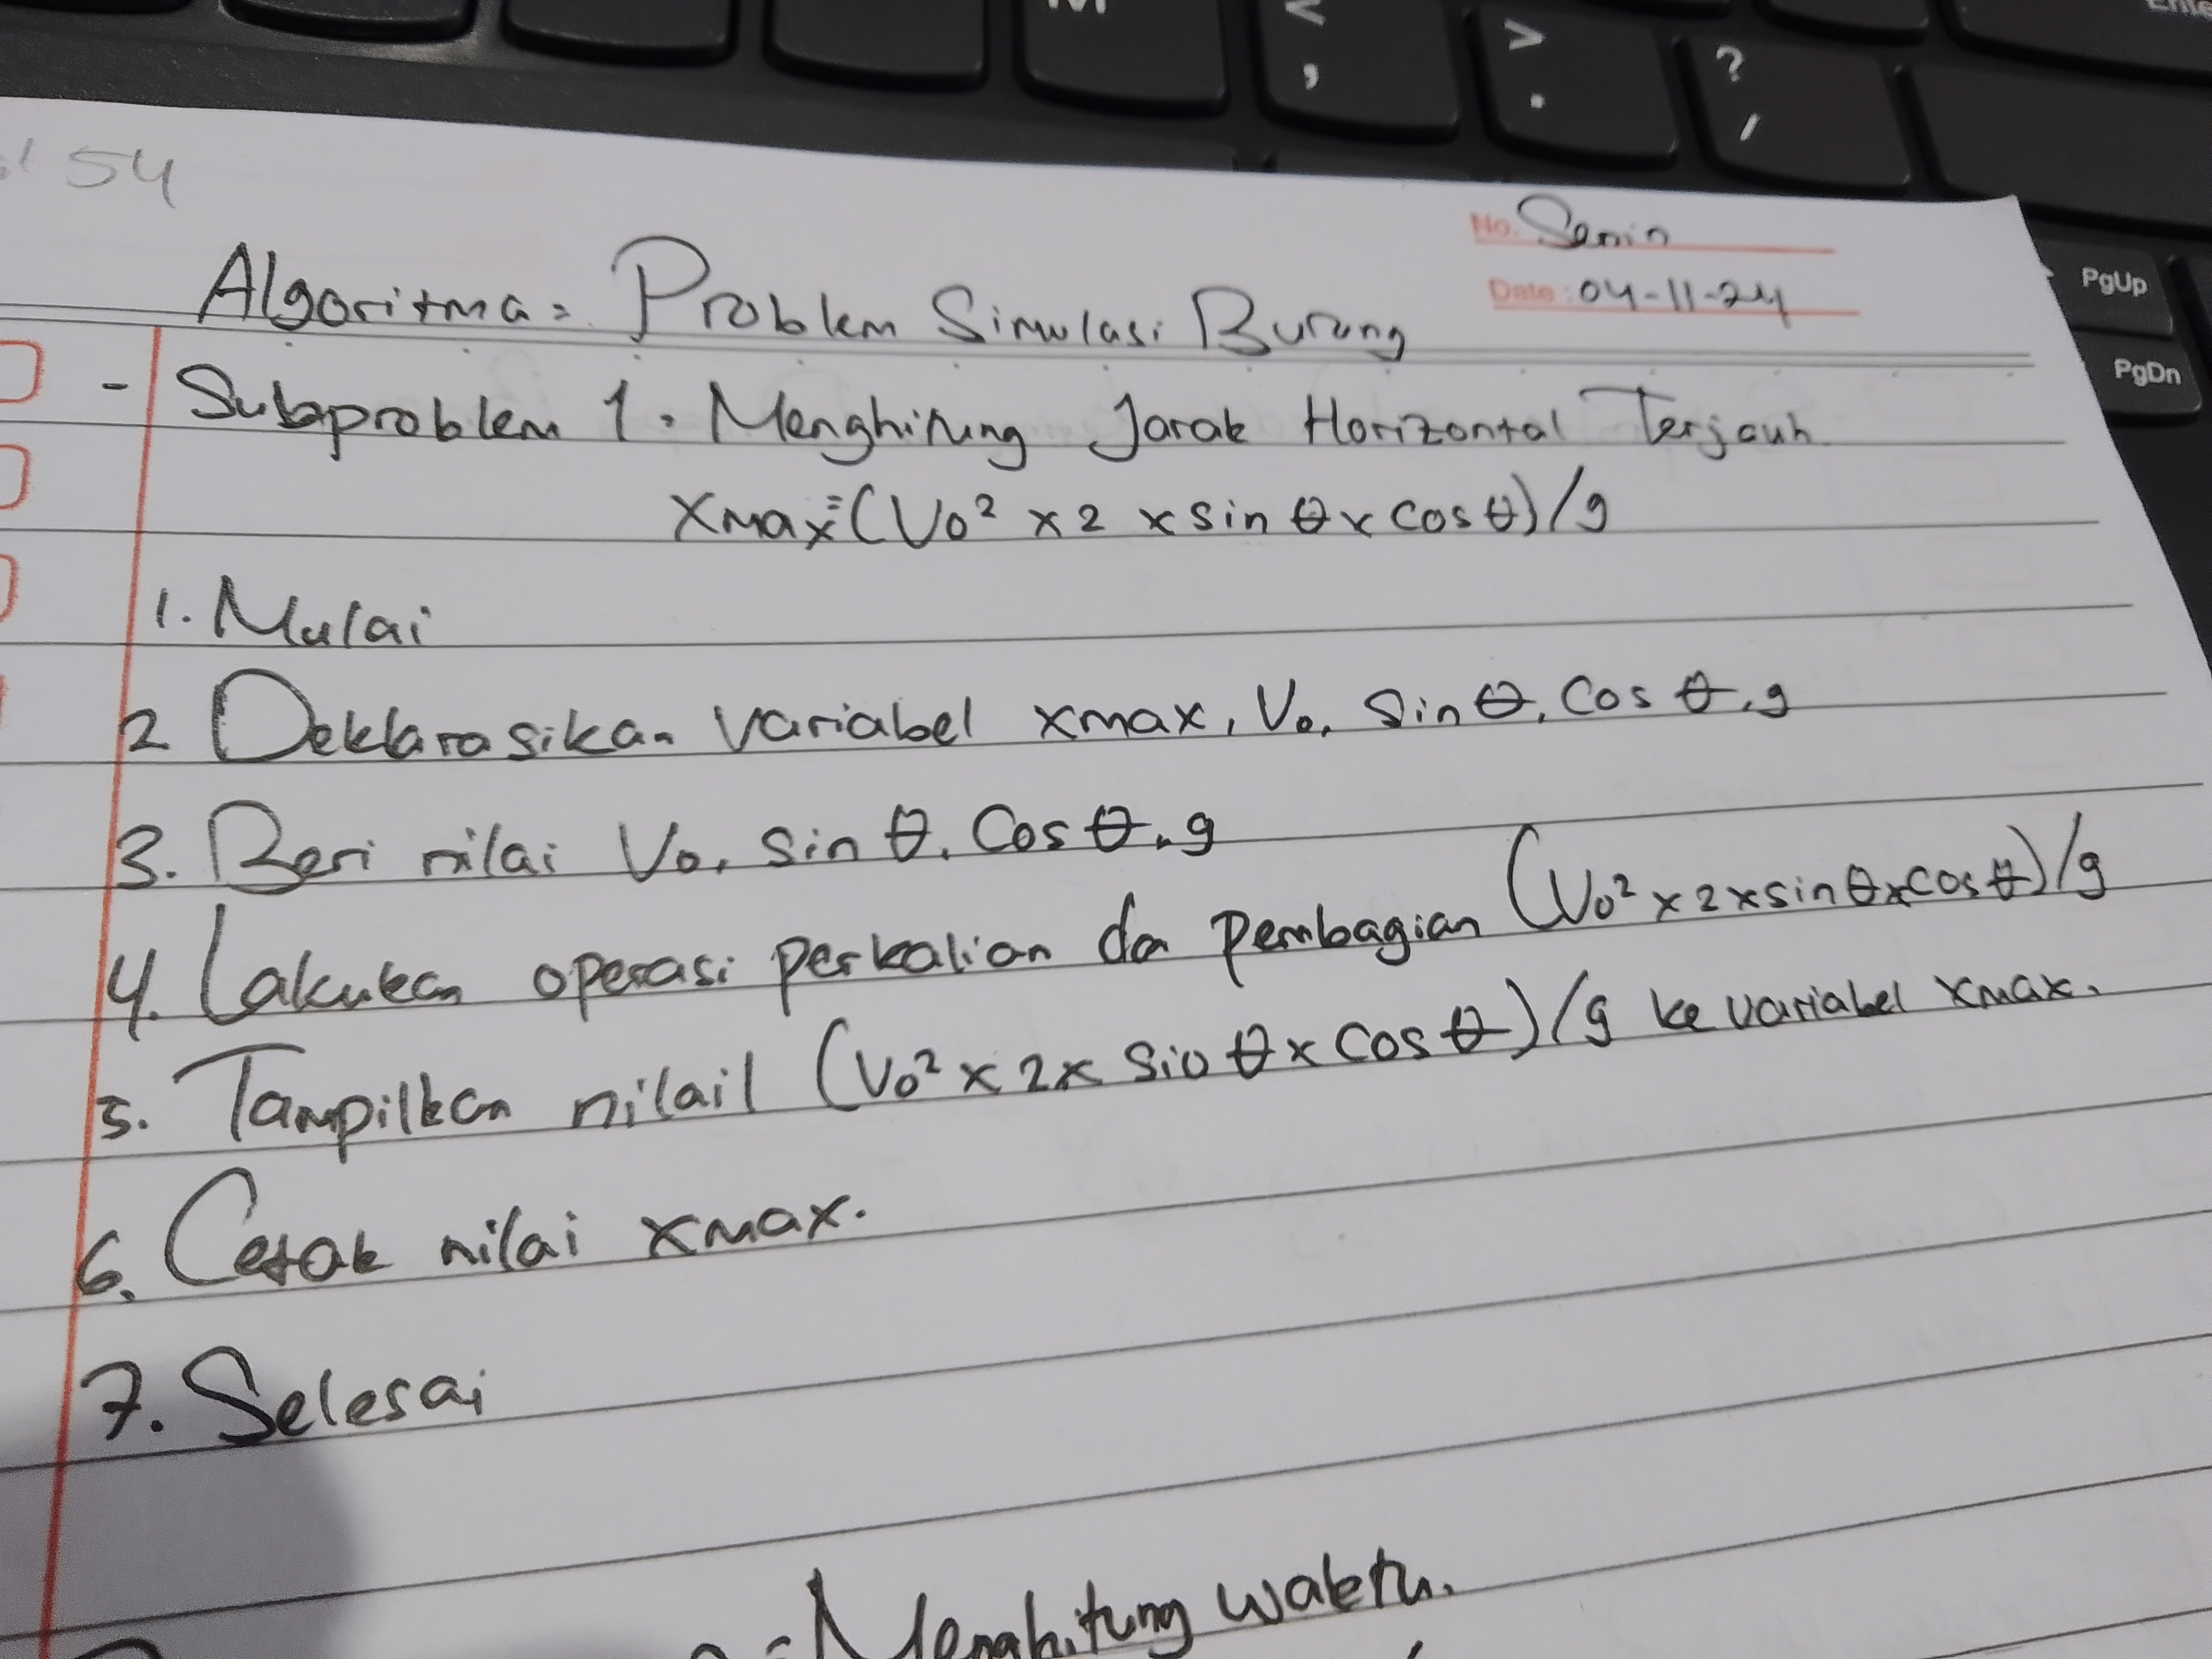 M < , > . ? / Enter
PgUp
PgDn
54
No. Senin
Date: 04-11-24
Algoritma = Problem Simulasi Burung
- Subproblem 1. Menghitung Jarak Horizontal Terjauh
Xmax=(Vo² x 2 x sin θ x cos θ)/g
1. Mulai
2 Deklarasikan variabel xmax, Vo, Sin θ, Cos θ, g
3. Beri nilai Vo, Sin θ, Cos θ, g
4. Lakukan operasi perkalian da pembagian (Vo² x 2 x sin θ x cos θ)/g
5. Tampilkan nilail (Vo² x 2 x Sin θ x cos θ)/g ke variabel xmax.
6. Cetak nilai xmax.
7. Selesai
Menghitung waktu.